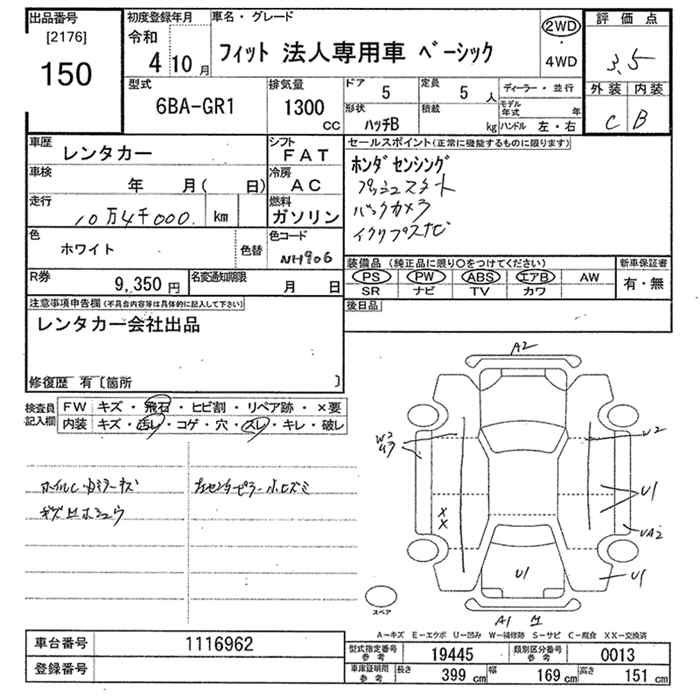 出品番号
[2176]
150
初度登録年月
令和
4年 10月
車名・グレード
フィット 法人専用車 ベーシック
2WD
・
4WD
評価点
3.5
外装 内装
C B
型式
6BA-GR1
排気量
1300
CC
ドア
5
定員
5 人
形状
ハッチB
積載
kg
ディーラー・並行
モデル年式 年
ハンドル 左・右
車歴
レンタカー
シフト
FAT
車検
年 月( 日)
冷房
AC
走行
10万4千000 km
燃料
ガソリン
色
ホワイト
色替
色コード
NH906
R券
9,350 円
名変通知期限
月 日
セールスポイント(正常に機能するものに限ります)
ホンダセンシング
プッシュスタート
バックカメラ
イクリプスナビ
装備品(純正品に限り○をつけてください)
PS PW ABS エアB AW
SR ナビ TV カワ
新車保証書
有・無
後日品
注意事項申告欄(不具合内容等は具体的に記入して下さい)
レンタカー会社出品
修復歴 有〔箇所 〕
検査員記入欄
FW キズ・飛石・ヒビ割・リペア跡・×要
内装 キズ・汚レ・コゲ・穴・スレ・キレ・破レ
キズ有ホシュウ
A2
W2
U2
U1
X
X
UA2
U1
U1
A1
スペア
A－キズ E－エクボ U－凹み W－補修跡 S－サビ C－腐食 XX－交換済
車台番号 1116962
登録番号
型式指定番号 参考 19445
類別区分番号 参考 0013
車庫証明用 参考 長さ 399 cm 幅 169 cm 高さ 151 cm